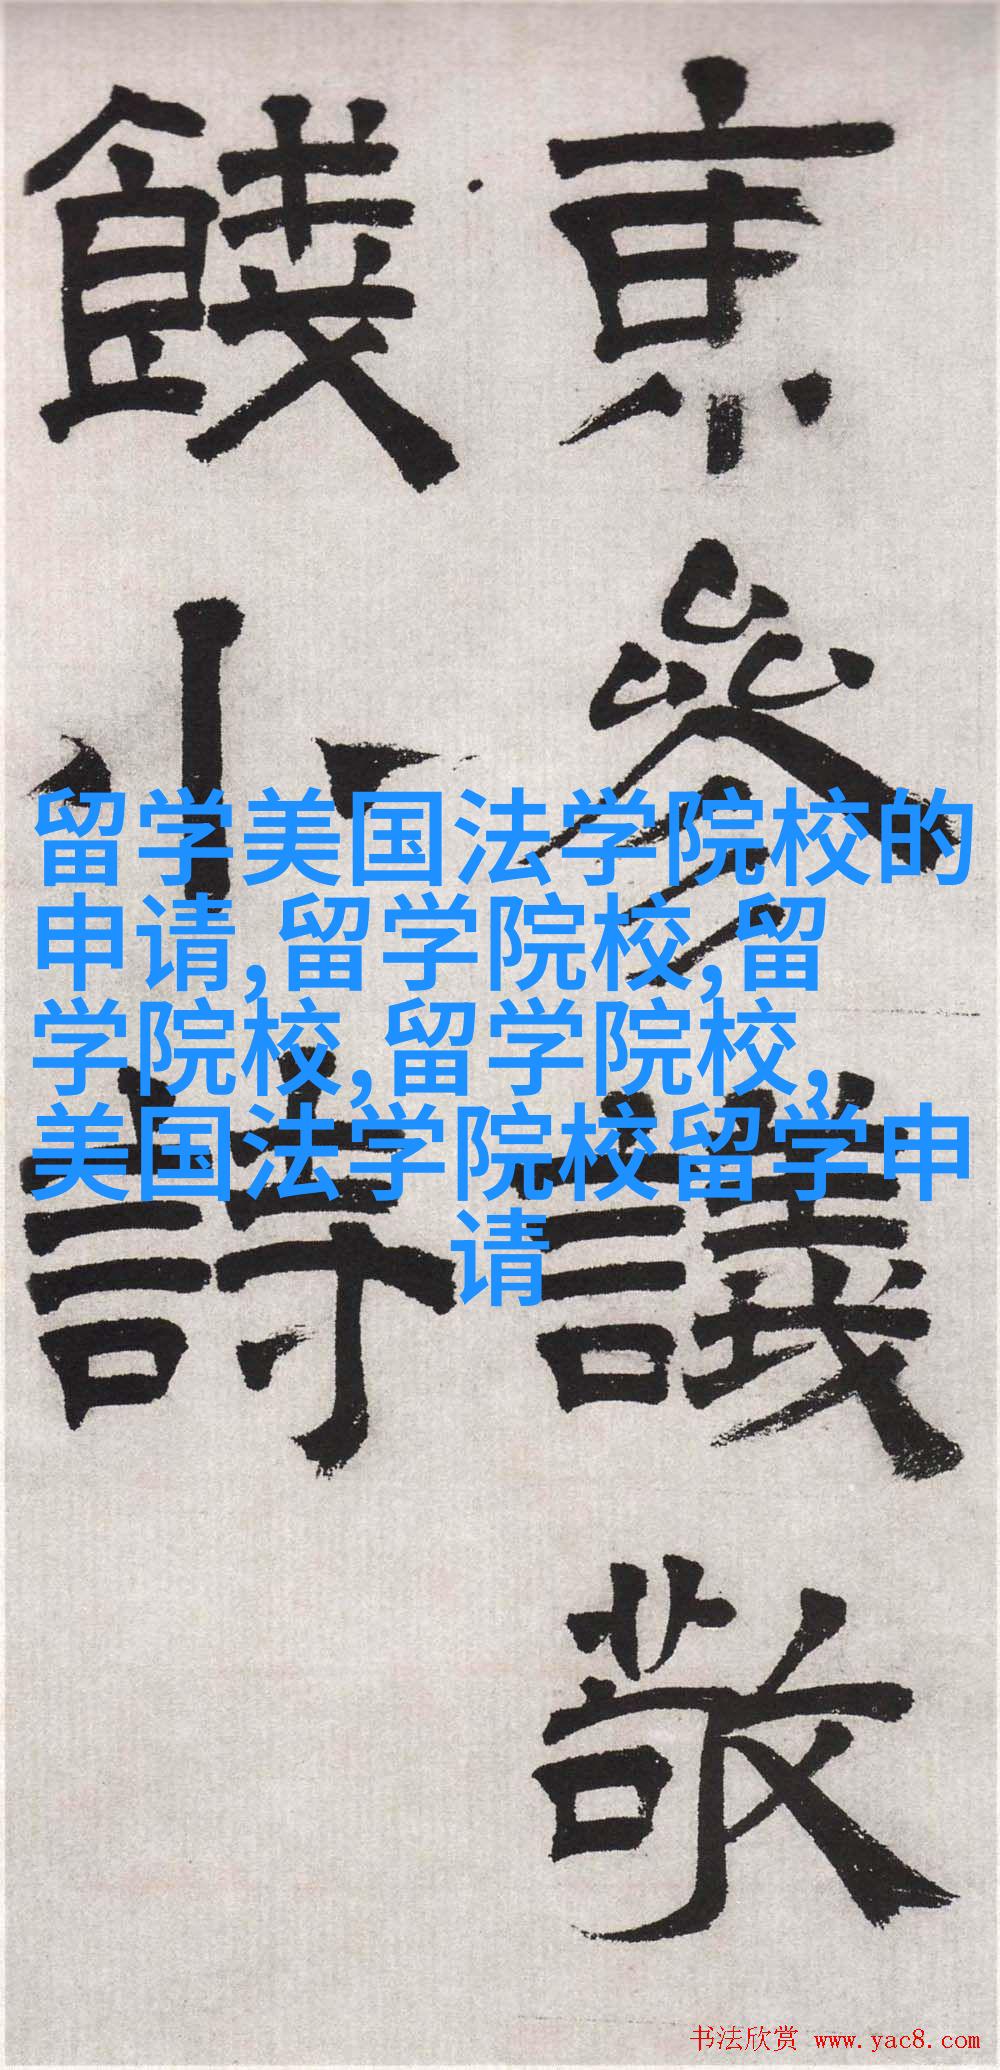 京參議敬
餞小詩
留学美国法学院校的
申请,留学院校,留
学院校,留学院校,
美国法学院校留学申
请
书法欣赏 www.yac8.com